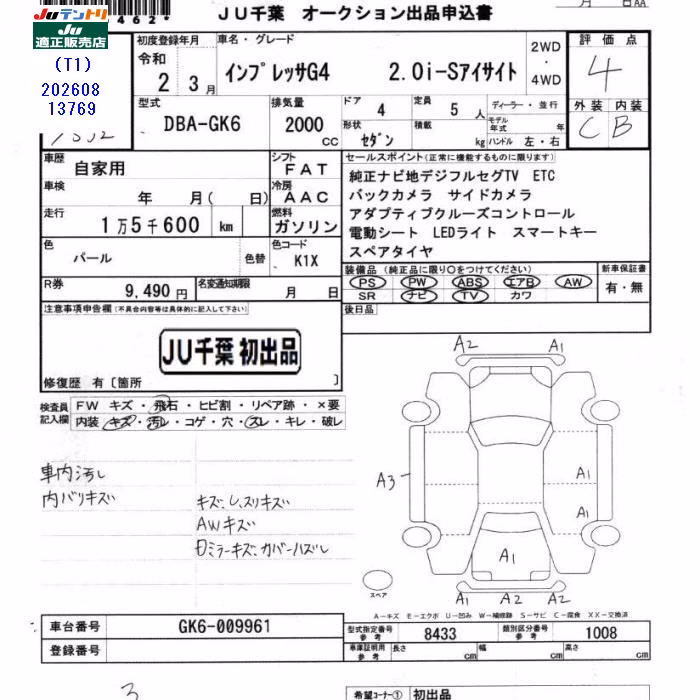 JUテントリ
JU
適正販売店
(T1)
202608
13769
462*
JU千葉 オークション出品申込書
月 日AA
初度登録年月
令和 2 3月
車名・グレード
インプレッサG4 2.0i-Sアイサイト
2WD
・
4WD
評価点
4
外装 内装
C B
型式
DBA-GK6
排気量
2000 cc
ドア 4
定員 5 人
ディーラー・並行
形状 セダン
積載 kg
モデル年式 年
ハンドル 左・右
車歴
自家用
シフト
FAT
車検
年 月( 日)
冷房
AAC
走行
1万5千600 km
燃料
ガソリン
色
パール
色替
色コード
K1X
R券
9,490円
名変通知期限
月 日
セールスポイント(正常に機能するものに限ります)
純正ナビ地デジフルセグTV ETC
バックカメラ サイドカメラ
アダプティブクルーズコントロール
電動シート LEDライト スマートキー
スペアタイヤ
装備品(純正品に限り○をつけてください)
PS PW ABS エアB AW
SR ナビ TV カワ
新車保証書
有・無
後日品
注意事項申告欄(不具合内容等は具体的に記入して下さい)
JU千葉 初出品
修復歴 有〔箇所 〕
検査員記入欄
FW キズ・飛石・ヒビ割・リペア跡・×要
内装・キズ・汚レ・コゲ・穴・スレ・キレ・破レ
車内汚し
内バリキズ
キズ、し、スリキズ
AWキズ
Dミラーキズ、カバーハズレ
A2 A1
A3
A1
A1
A1
A1 A2 A2
スペア
A-キズ E-エクボ U-凹み W-補修跡 S-サビ C-腐食 XX-交換済
車台番号
GK6-009961
登録番号
型式指定番号
参考
8433
類別区分番号
参考
1008
車庫証明用
参考
長さ cm
幅 cm
高さ cm
3
希望コーナー① 初出品